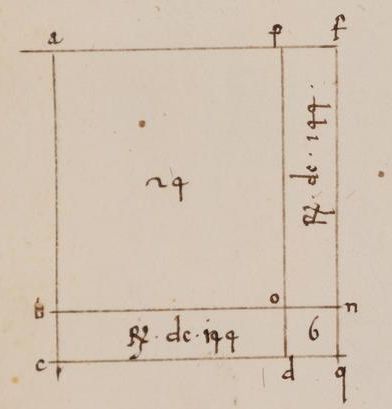 a p f
24
℞. de. 144.
o n
℞. de. 144
6
c d q